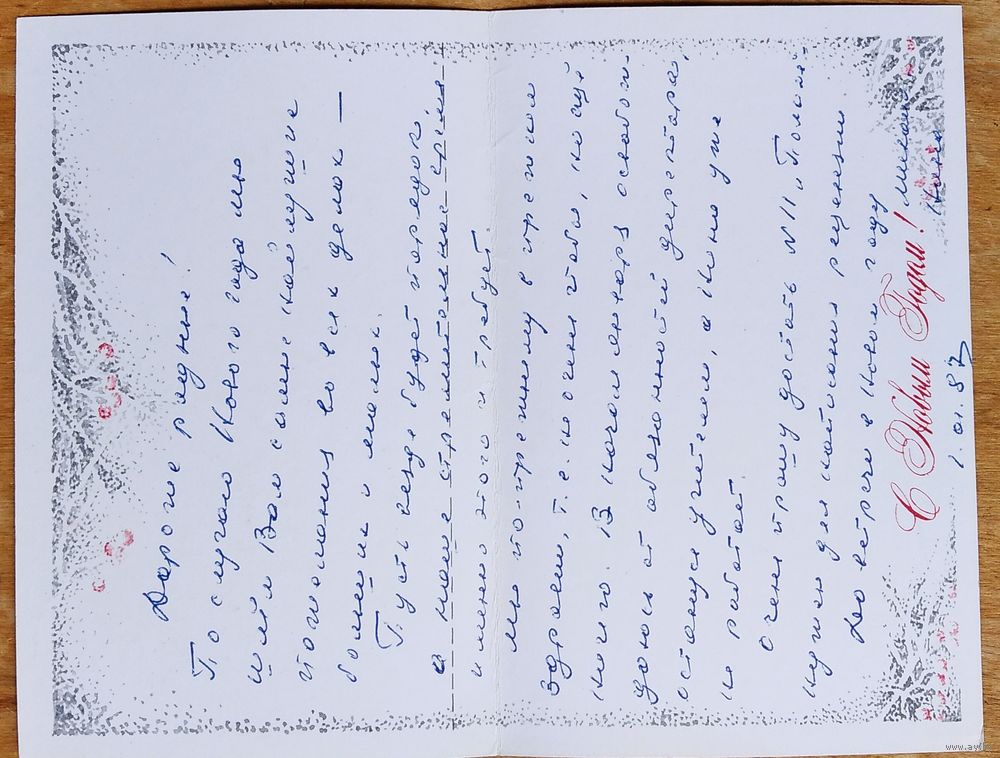 Дорогие родные!
По случаю Нового года мы
шлём Вам самые наилучшие
пожелания во всех делах —
больших и малых.
Пусть везде будет порядок
а наше стремительное время
именно этого и требует.
Мы по-прежнему в прежнем
здравии, т.е. не очень чтобы, но ещё
ничего. В начале января освобож-
даюсь от обязанностей директора,
останусь учителем, а Нина уже
не работает.
Очень прошу достать №11 "Полымя"
нужен для написания рецензии
До встречи в Новом году
Нина
С Новым Годом!
1.01.87
www.ay.by